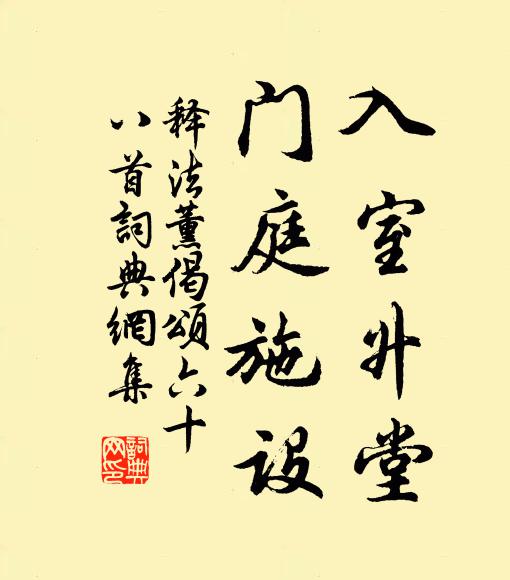 入室升堂
门庭施设
释法薰偈颂六十
八首詞典網集
詞典
网印